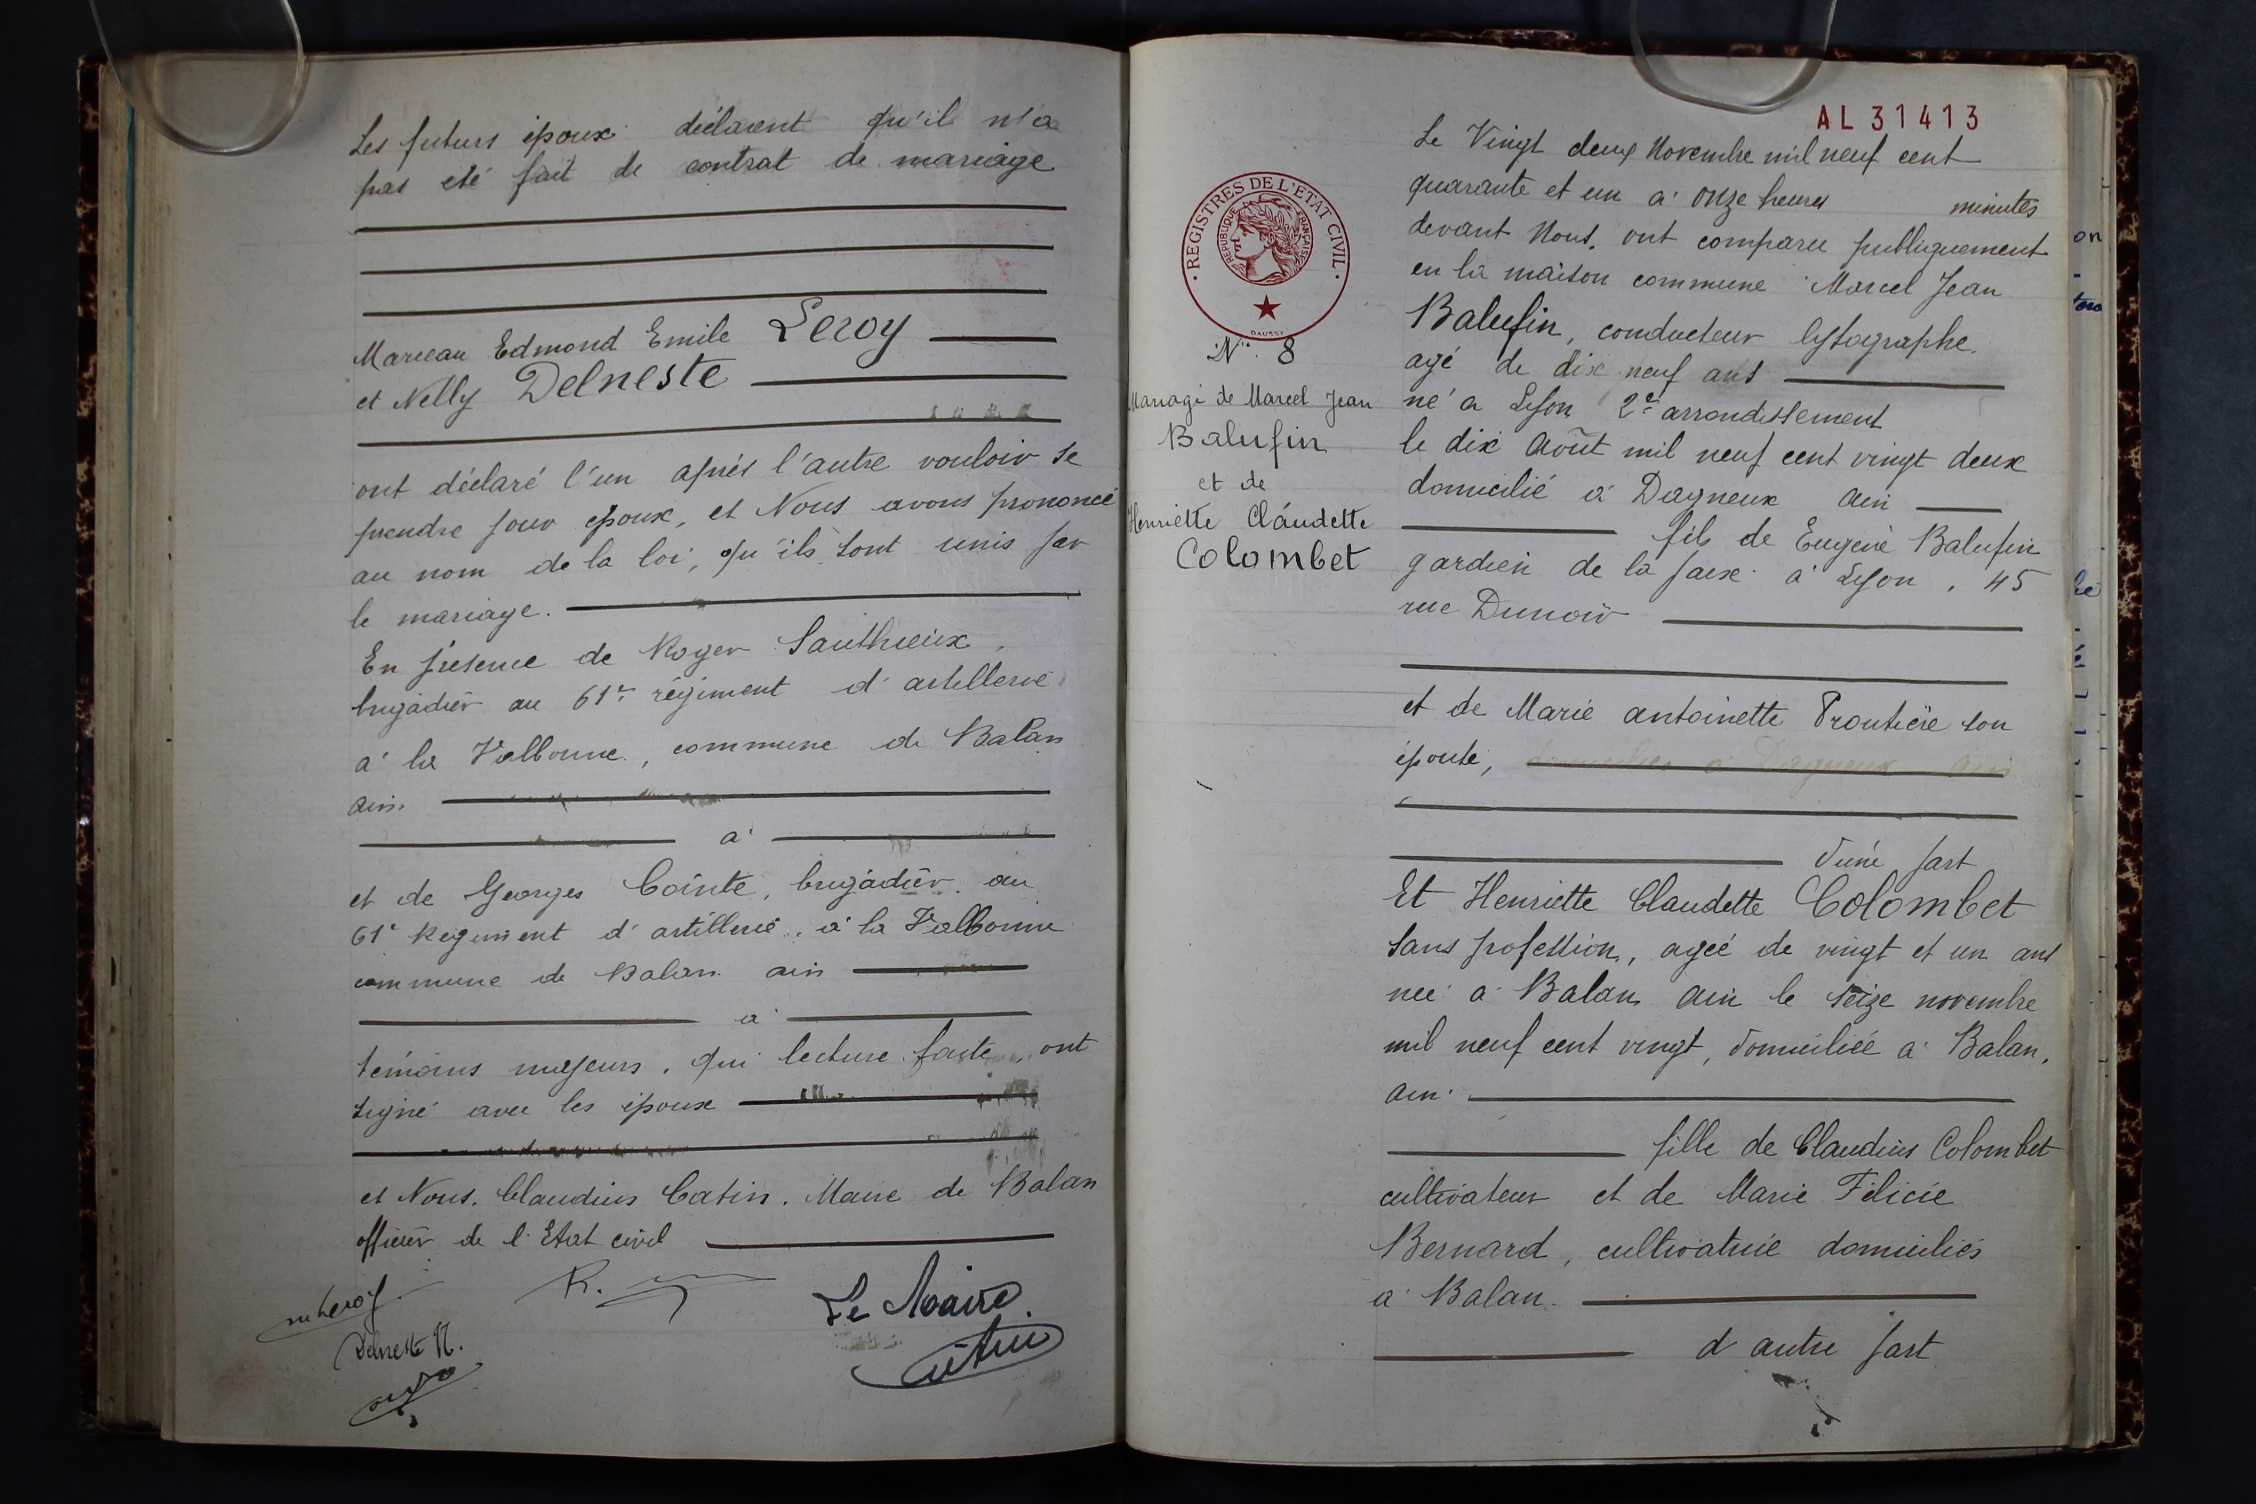 Les futurs époux déclarent qu'il n'a
pas été fait de contrat de mariage
Marceau Edmond Emile Leroy
et Nelly Delneste
ont déclaré l'un après l'autre vouloir se
prendre pour époux, et Nous avons prononcé
au nom de la loi, qu'ils sont unis par
le mariage.
En présence de Roger Sauthieux,
brigadier au 61e régiment d'artillerie
à la Valbonne, commune de Balan
ain.
à
et de Georges Cointe, brigadier au
61e Régiment d'artillerie, à la Valbonne
commune de Balan ain
à
témoins majeurs, qui lecture faite, ont
signé avec les époux
et Nous, Claudius Catin, Maire de Balan
officier de l'Etat civil
m Leroy
Delneste N.
R.
Le Maire
Catin
AL 31413
REGISTRES DE L'ETAT CIVIL
REPUBLIQUE FRANÇAISE
DAUSSY
N° 8
Mariage de Marcel Jean
Balufin
et de
Henriette Claudette
Colombet
Le Vingt deux Novembre mil neuf cent
quarante et un à onze heures minutes
devant Nous, ont comparu publiquement
en la maison commune Marcel Jean
Balufin, conducteur lytographe.
agé de dix neuf ans
né à Lyon 2e arrondissement
le dix Août mil neuf cent vingt deux
domicilié à Dagneux ain
fils de Eugène Balufin
gardien de la paix à Lyon, 45
rue Dunoir
et de Marie antoinette Proutière son
épouse, domiciliés à Dagneux ain
d'une part
Et Henriette Claudette Colombet
sans profession, agée de vingt et un ans
née à Balan ain le seize novembre
mil neuf cent vingt, domiciliée à Balan,
ain.
fille de Claudius Colombet
cultivateur et de Marie Félicie
Bernard, cultivatrice domiciliés
à Balan.
d'autre part